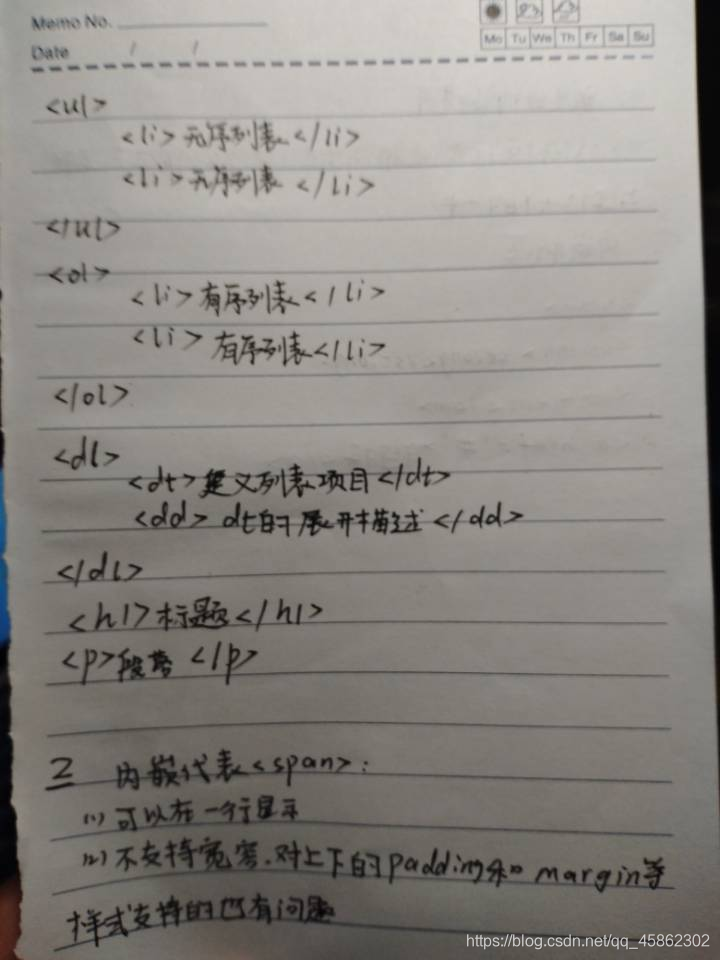 Memo No.
Mo Tu We Th Fr Sa Su
Date / /
<ul>
<li>无序列表</li>
<li>无序列表</li>
</ul>
<ol>
<li>有序列表</li>
<li>有序列表</li>
</ol>
<dl>
<dt>定义列表项目</dt>
<dd>dt的展开描述</dd>
</dl>
<h1>标题</h1>
<p>段落</p>
2 内嵌代表<span>:
(1)可以在一行显示
(2)不支持宽高.对上下的padding和margin等
样式支持的也有问题
https://blog.csdn.net/qq_45862302